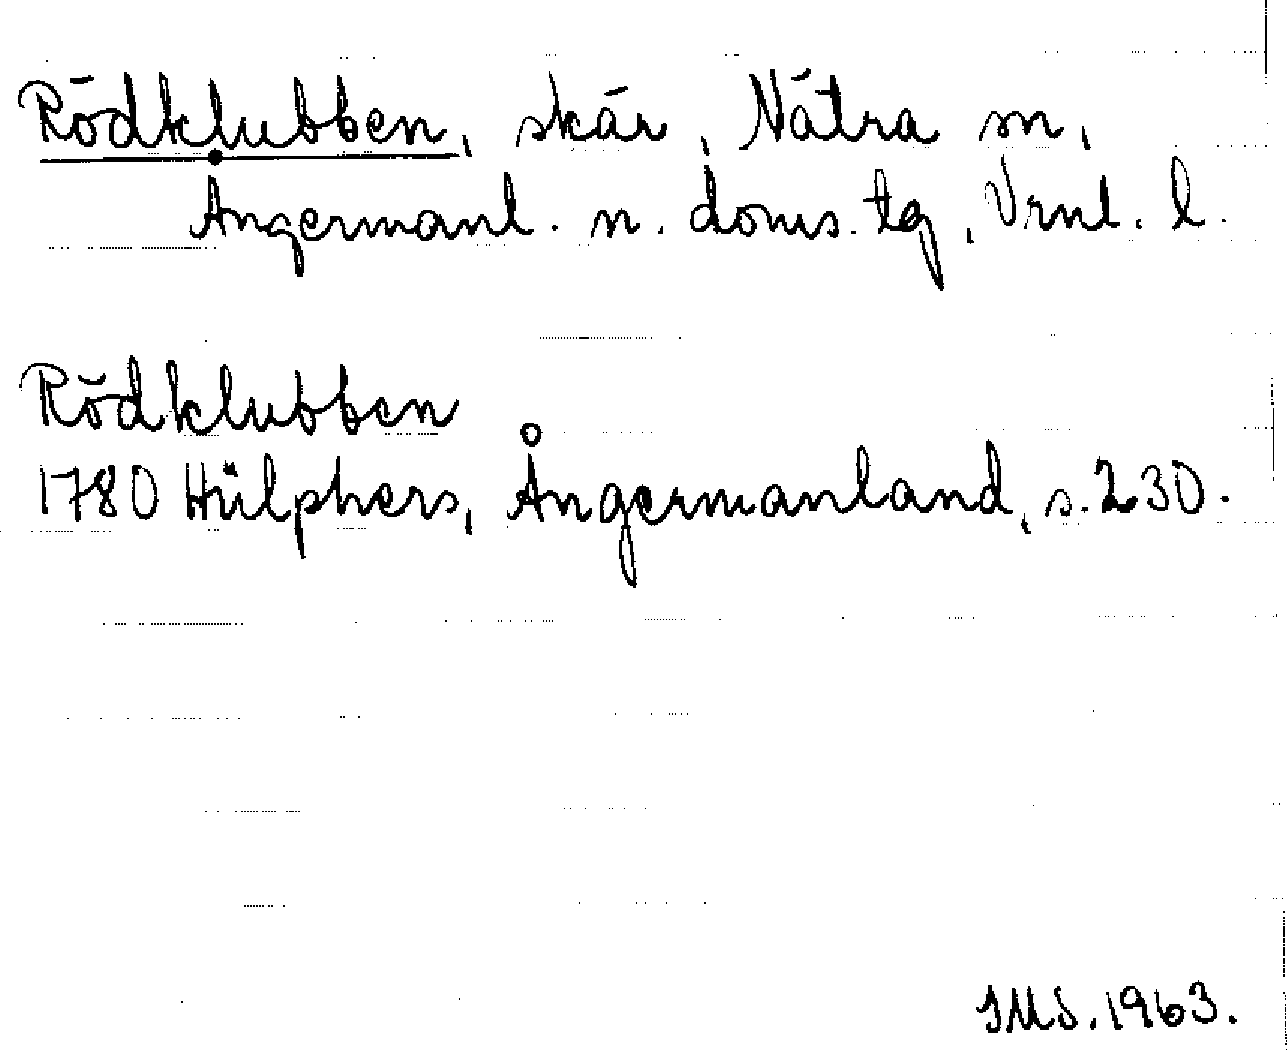 Rödklubben, skär, Nätra sn,
Ångermanl. n. doms.tg, Vrnl. l.
Rödklubben
1780 Hülphers, Ångermanland, s. 230.
IMS. 1963.